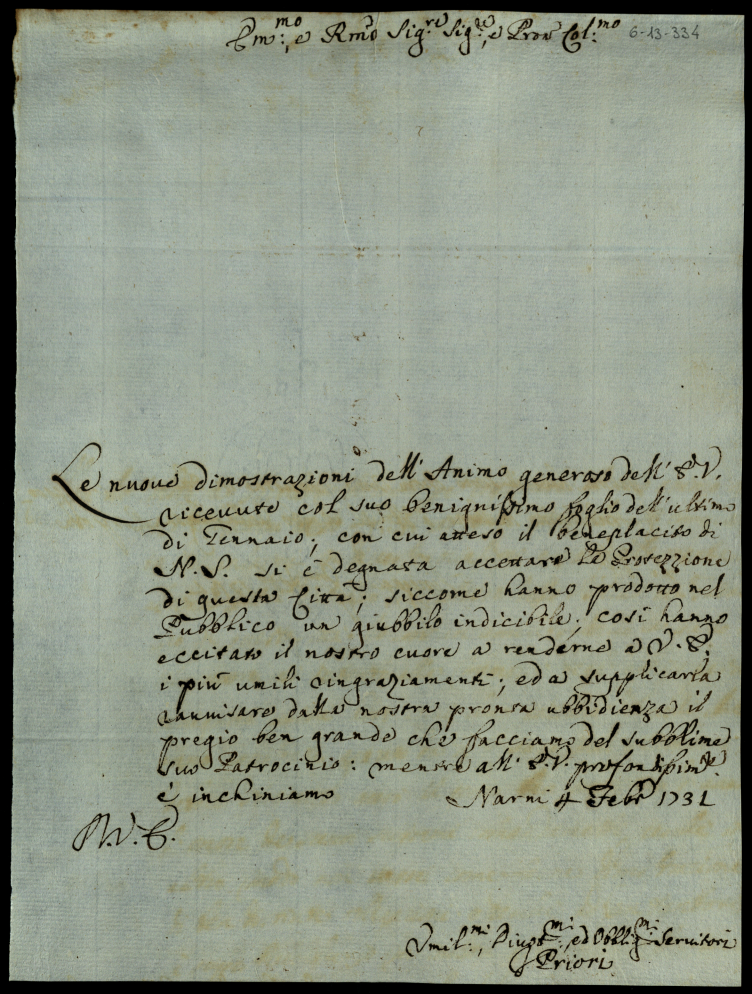 Em:mo, e Rmo Sigre Sigre, e Pron Col:mo 6-13-334
Le nuove dimostrazioni dell' Animo generoso dell' E.V.
ricevute col suo benignissimo foglio dell' ultimo
di Gennaio; con cui atteso il beneplacito di
N.S. si è degnata accettare la Protezzione
di questa Città; siccome hanno prodotto nel
Pubblico un giubbilo indicibile; così hanno
eccitato il nostro cuore a renderne a V.E.
i più umili ringraziamenti; ed a supplicarla
ravvisare dalla nostra pronta ubbidienza il
pregio ben grande che facciamo del subblime
suo Patrocinio: mentre all' E.V. profondissimte
c' inchiniamo Narni 4 Febro 1731
Umil:mi, Divot:mi, ed Obblig:mi Servitori
Priori